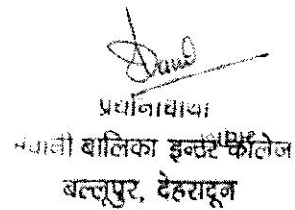 प्रधानाचार्या
बालिका इन्टर कॉलेज
बल्लूपुर, देहरादून